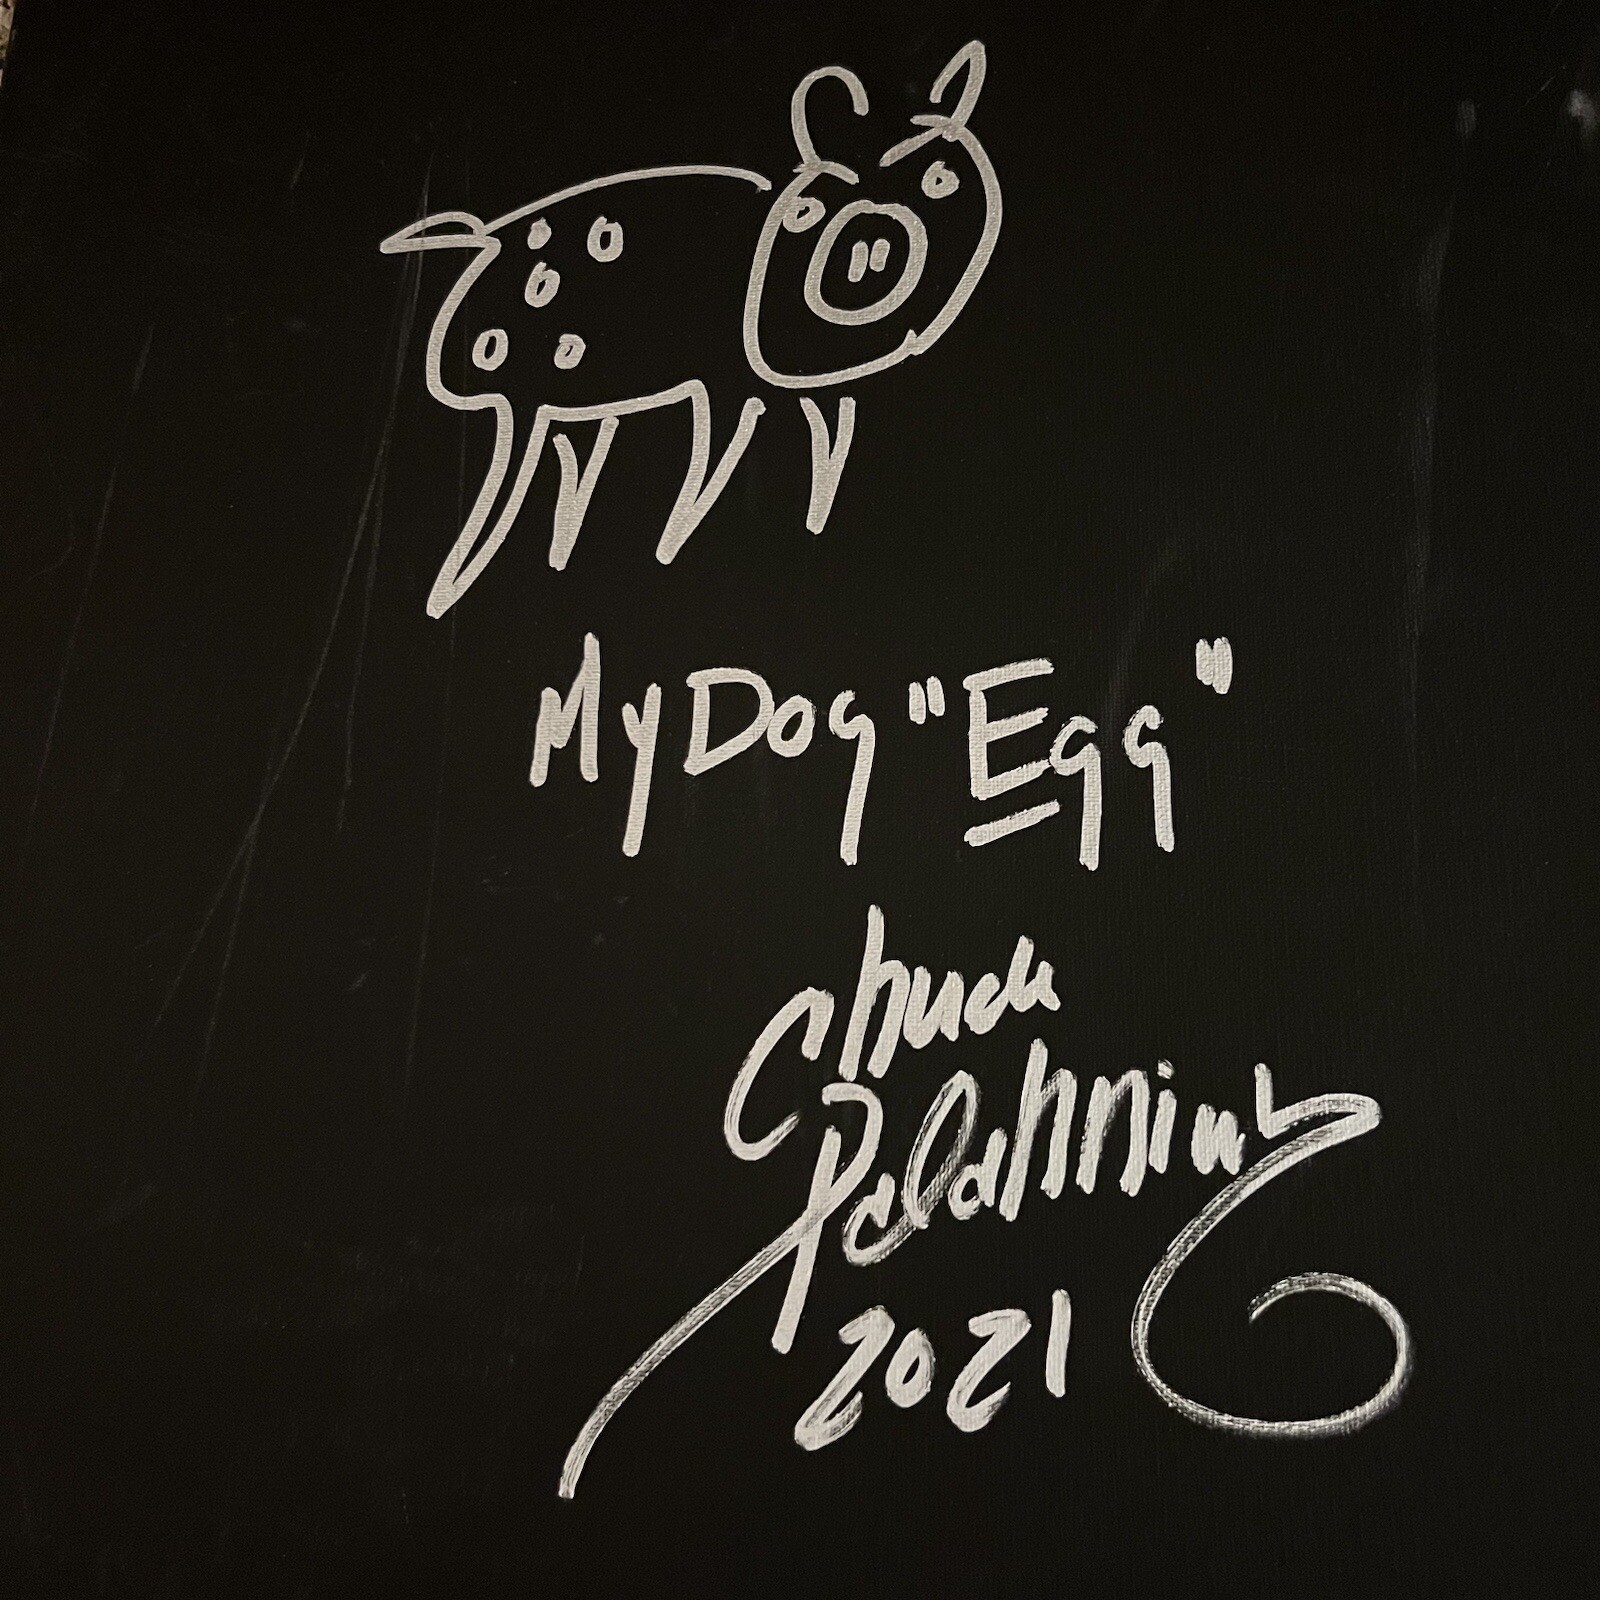 My Dog "Egg"
Chuck
Palahniuk
2021